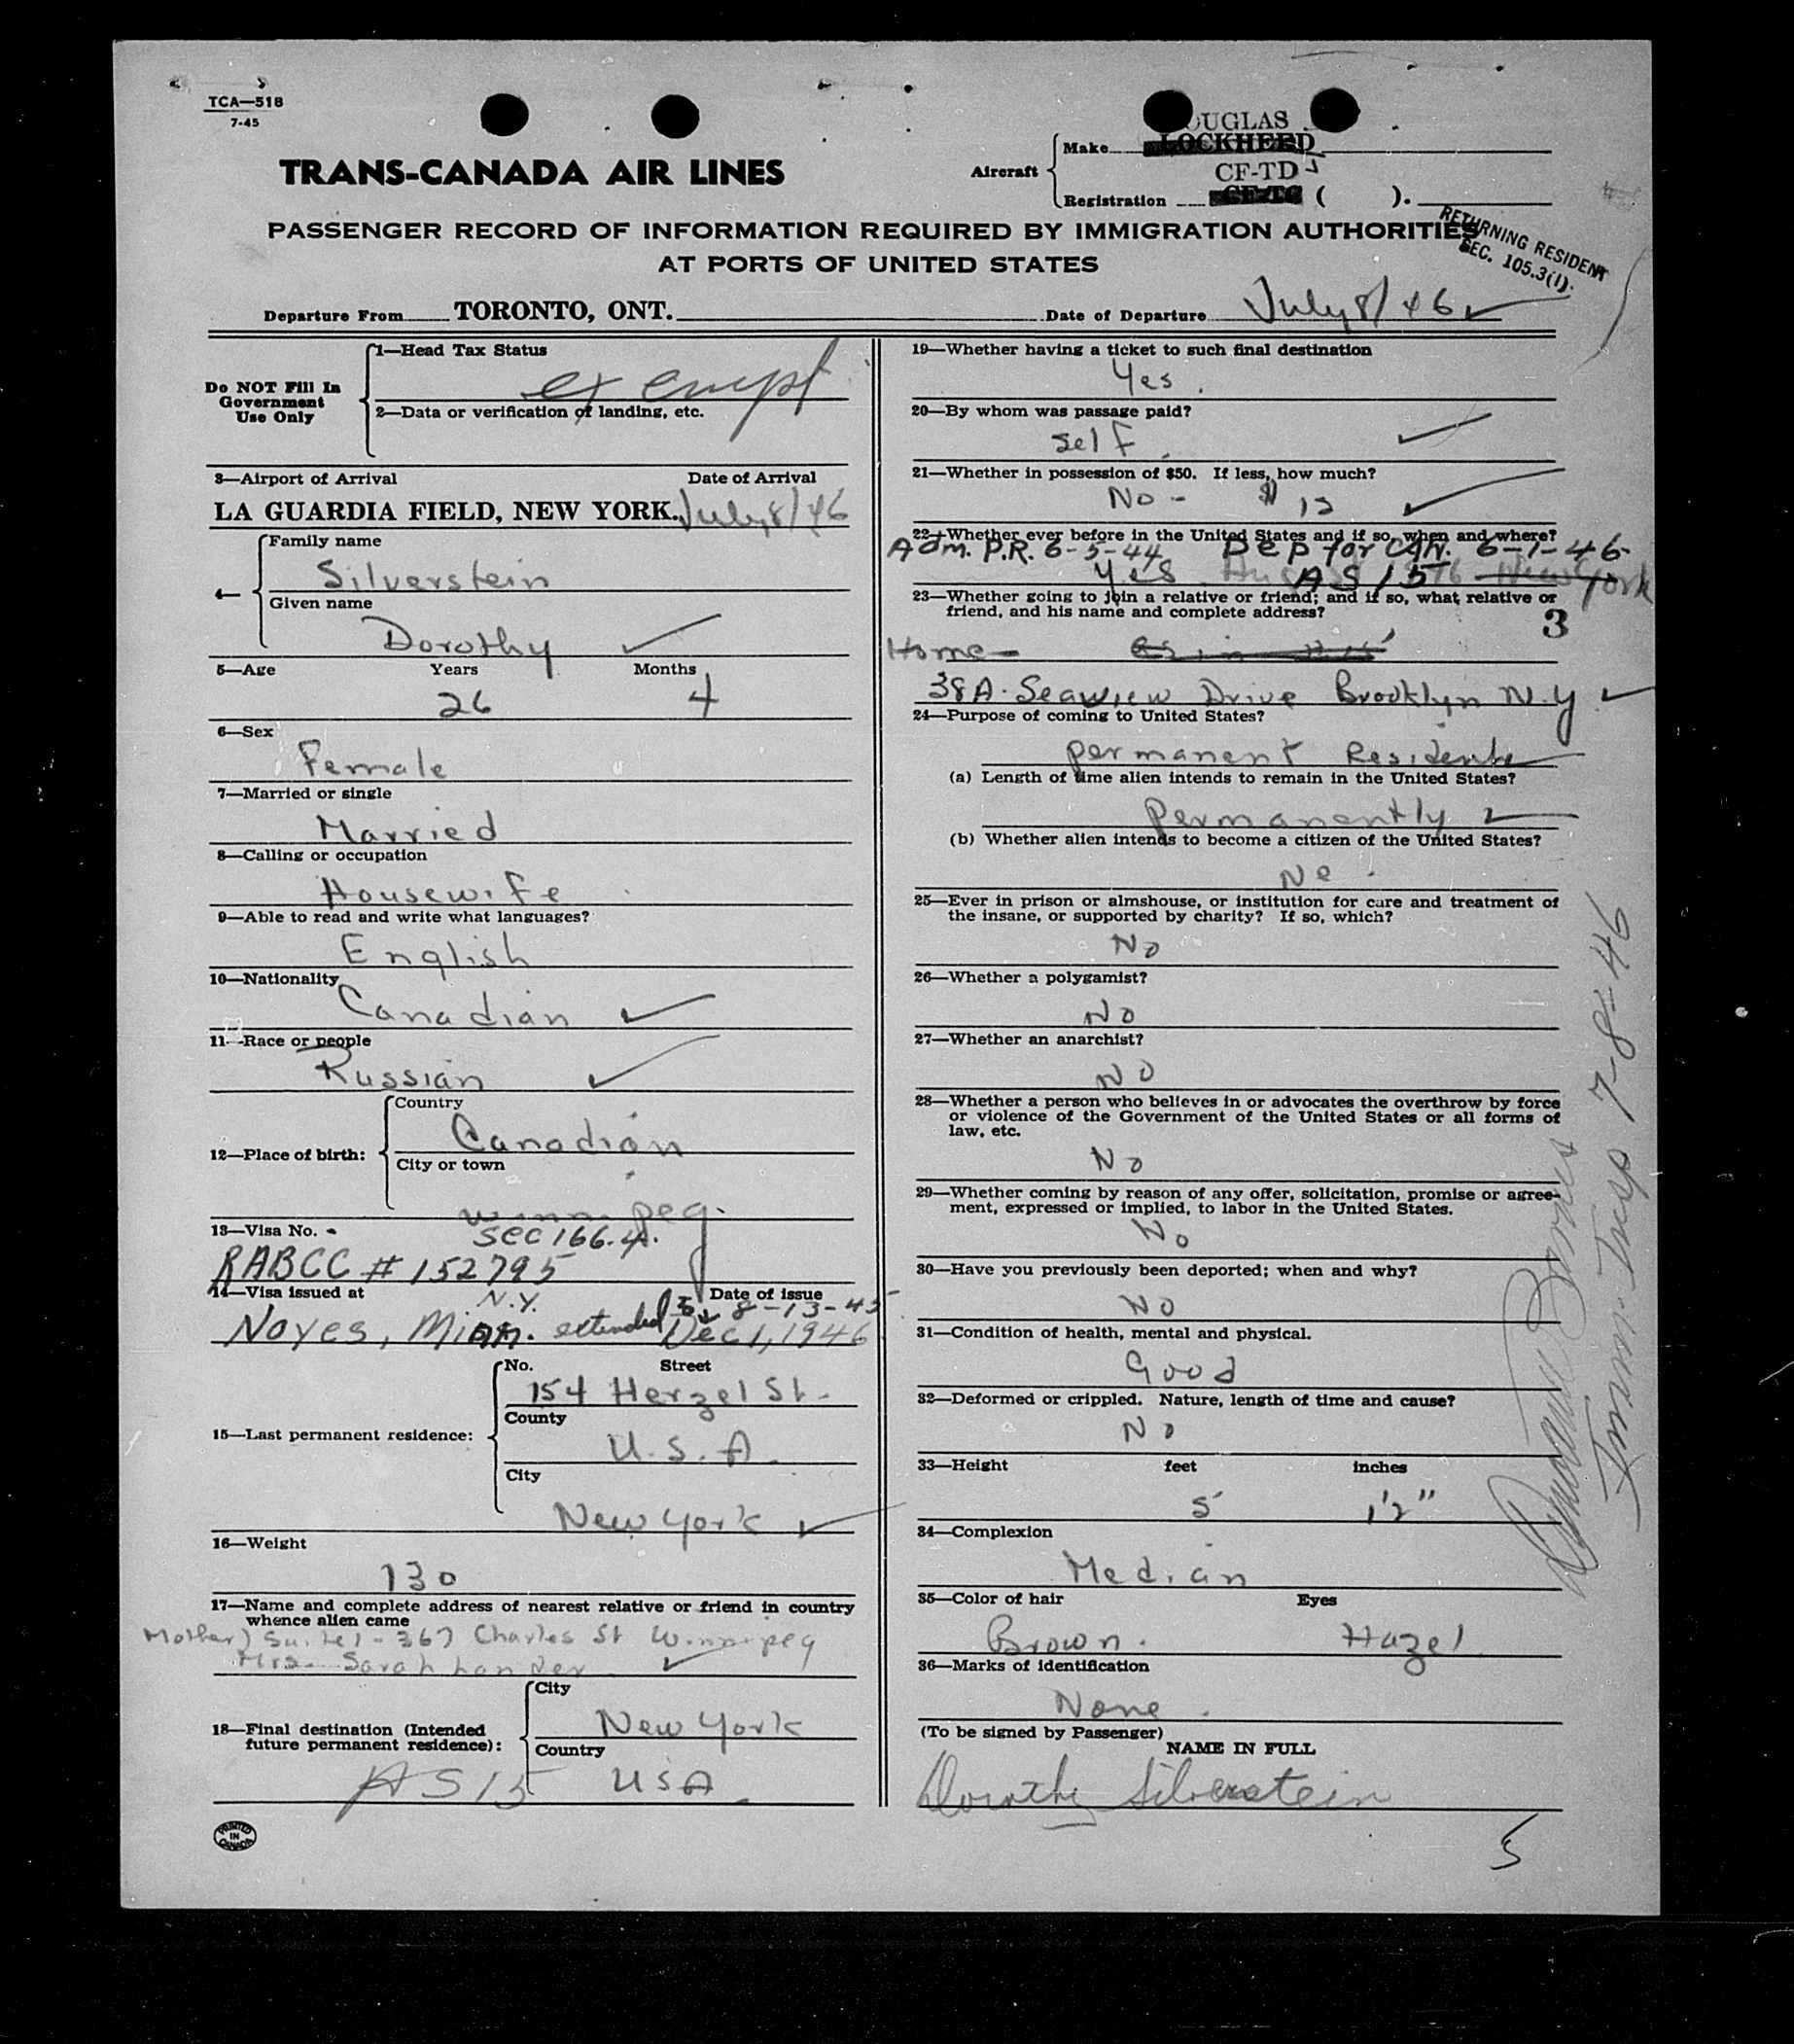 TCA—518
7-45
TRANS-CANADA AIR LINES
Aircraft
Make
OUGLAS
LOCKHEED
CF-TD
Registration CF-TC ( ).
PASSENGER RECORD OF INFORMATION REQUIRED BY IMMIGRATION AUTHORITIES
AT PORTS OF UNITED STATES
RETURNING RESIDENT
SEC. 105.3(1).
Departure From TORONTO, ONT. Date of Departure July 8/46
Do NOT Fill In
Government
Use Only
1—Head Tax Status
exempt
2—Data or verification of landing, etc.
3—Airport of Arrival Date of Arrival
LA GUARDIA FIELD, NEW YORK. July 8/46
4—
Family name
Silverstein
Given name
Dorothy
5—Age Years Months
26 4
6—Sex
Female
7—Married or single
Married
8—Calling or occupation
Housewife
9—Able to read and write what languages?
English
10—Nationality
Canadian
11—Race or people
Russian
12—Place of birth:
Country
Canadian
City or town
Winnipeg.
13—Visa No. -
Sec 166.4.
RABCC # 152795
14—Visa issued at Date of issue
N.Y. 8-13-45
Noyes, Minn. extended to Dec 1, 1946
15—Last permanent residence:
No. Street
154 Herzel St.
County
U.S.A.
City
New York
16—Weight
130
17—Name and complete address of nearest relative or friend in country
whence alien came
Mother) Suite 1 - 367 Charles St Winnipeg
Mrs. Sarah Lander
18—Final destination (Intended
future permanent residence):
City
New York
Country
AS15 USA
PRINTED
IN
CANADA
19—Whether having a ticket to such final destination
Yes.
20—By whom was passage paid?
self
21—Whether in possession of $50. If less, how much?
No - $ 12
22—Whether ever before in the United States and if so, when and where?
Adm. P.R. 6-5-44 Dep for CAN. 6-1-46-
Yes AS 15 New York
23—Whether going to join a relative or friend; and if so, what relative or
friend, and his name and complete address?
3
Home -
38A. Seaview Drive Brooklyn N.Y
24—Purpose of coming to United States?
permanent Residente
(a) Length of time alien intends to remain in the United States?
Permanently
(b) Whether alien intends to become a citizen of the United States?
No.
25—Ever in prison or almshouse, or institution for care and treatment of
the insane, or supported by charity? If so, which?
No
26—Whether a polygamist?
No
27—Whether an anarchist?
No
28—Whether a person who believes in or advocates the overthrow by force
or violence of the Government of the United States or all forms of
law, etc.
No
29—Whether coming by reason of any offer, solicitation, promise or agree-
ment, expressed or implied, to labor in the United States.
No
30—Have you previously been deported; when and why?
No
31—Condition of health, mental and physical.
Good
32—Deformed or crippled. Nature, length of time and cause?
No
33—Height feet inches
5 1'2"
34—Complexion
Median
35—Color of hair Eyes
Brown. Hazel
36—Marks of identification
None.
(To be signed by Passenger)
NAME IN FULL
Dorothy Silverstein
5
Imm. Insp 7-8-46